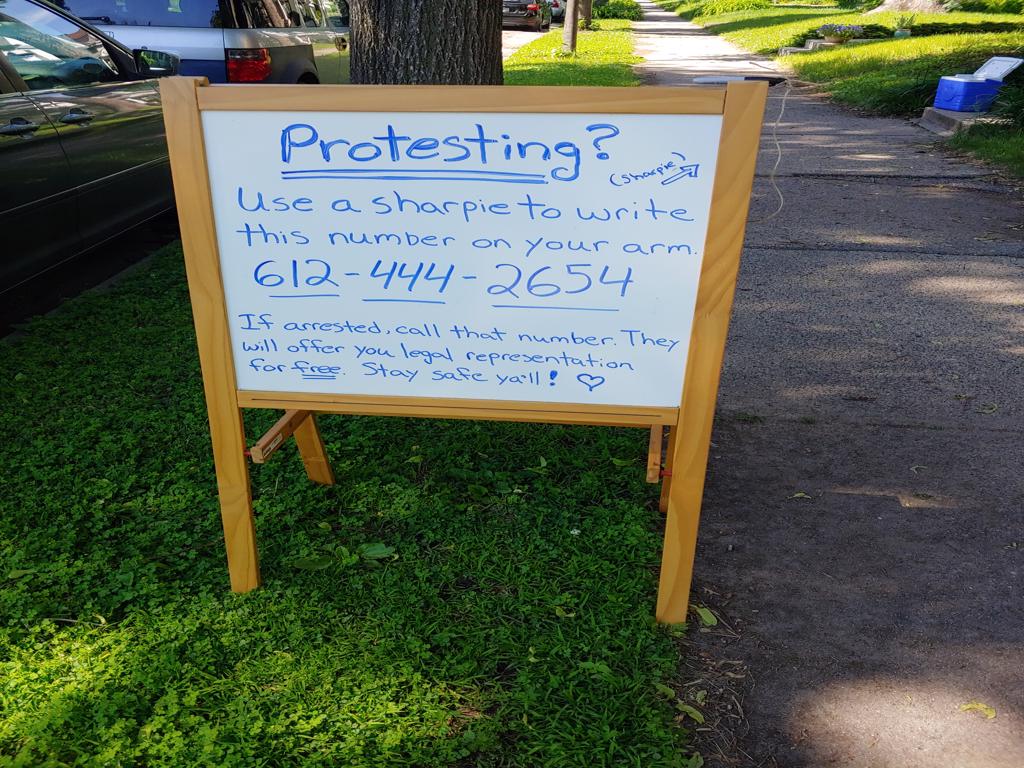 Protesting?
(sharpie)
Use a sharpie to write
this number on your arm.
612-444-2654
If arrested, call that number. They
will offer you legal representation
for free. Stay safe ya'll! ♡